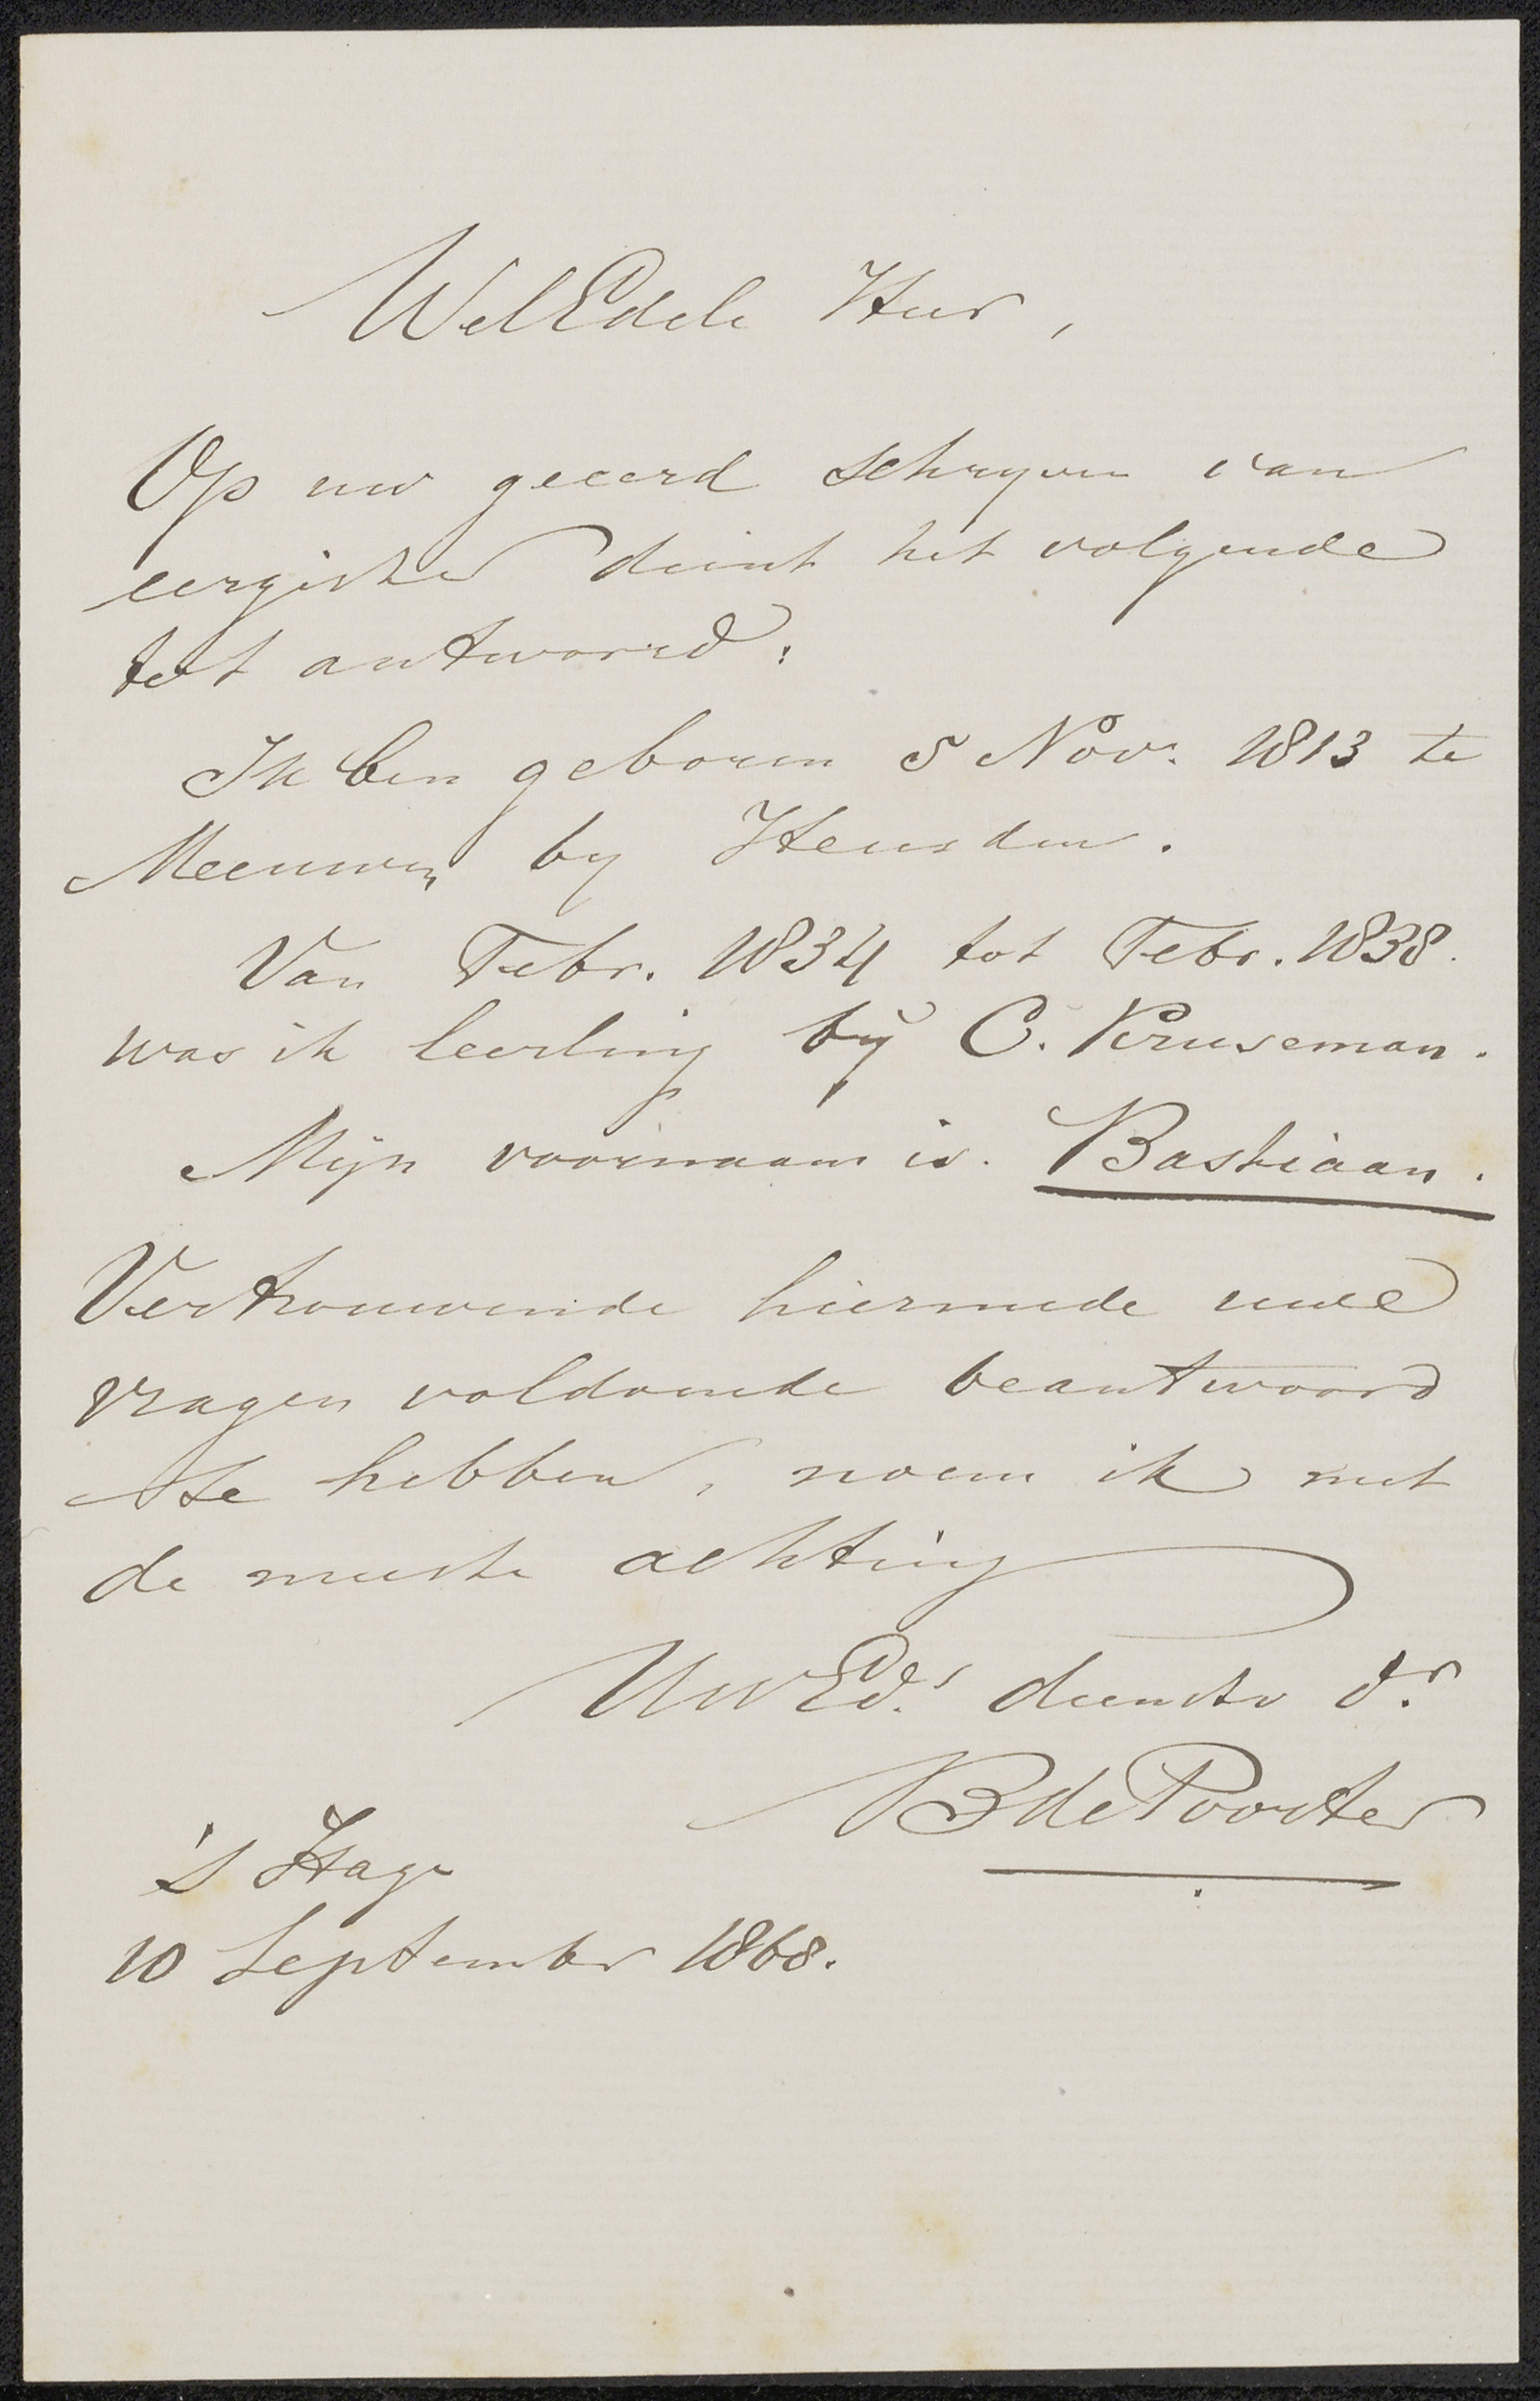 WelEdele Heer,
Op uw geeerd schryven van
eergister dient het volgende
tot antwoord:
Ik ben geboren 5 Nov. 1813 te
Meeuwen by Heusden.
Van Febr. 1834 tot Febr. 1838.
was ik leerling bij C. Kruseman.
Mijn voornaam is. Bastiaan.
Vertrouwende hiermede uwe
vragen voldoende beantwoord
te hebben, noem ik met
de meeste achting
UwEd.s dienstv dr.
B de Poorter
's Hage
10 September 1868.